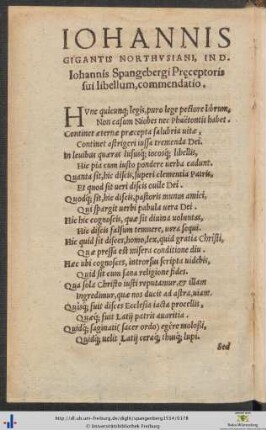 IOHANNIS
GIGANTIS NORTHVSIANI, IN D.
Iohannis Spangebergi Pręceptoris
sui libellum, commendatio.
HVnc quicunq; legis, puro lege pectore librum,
Non casum Niobes nec Phaëtontis habet.
Continet æternæ præcepta salubria uitæ,
Continet astrigeri iussa tremenda Dei.
In leuibus quæras lususq́; iocosq́; libellis,
Hic pia cum iusto pondere uerba cadunt.
Quanta sit, hic discis, superi clementia Patris,
Et quod sit ueri discis ouile Dei.
Quodq́; sit, hic discis, pastoris munus amici,
Qui spargit uerbi pabula uera Dei.
Hic hic cognosces, quæ sit diuina uoluntas,
Hic discis falsum temnere, uera sequi.
Hic quid sit disces, homo, lex, quid gratia Christi,
Quæ pressa est misera conditione diu.
Hæc ubi cognosces, introrsum scripta uidebis,
Quid sit cum sana religione fides.
Qua sola Christo iusti reputamur, et illam
Ingredimur, quæ nos ducit ad astra, uiam.
Quisq́; fuit disces Ecclesia iacta procellis,
Quæq́; fuit Latij patris auaritia.
Quidq́; saginati (sacer ordo) egêre molossi,
Quidq́; uelit Latij ceraq́; thusq́; lupi.
Sed
http://dl.ub.uni-freiburg.de/diglit/spangenberg1534/0178
© Universitätsbibliothek Freiburg
Baden-Württemberg